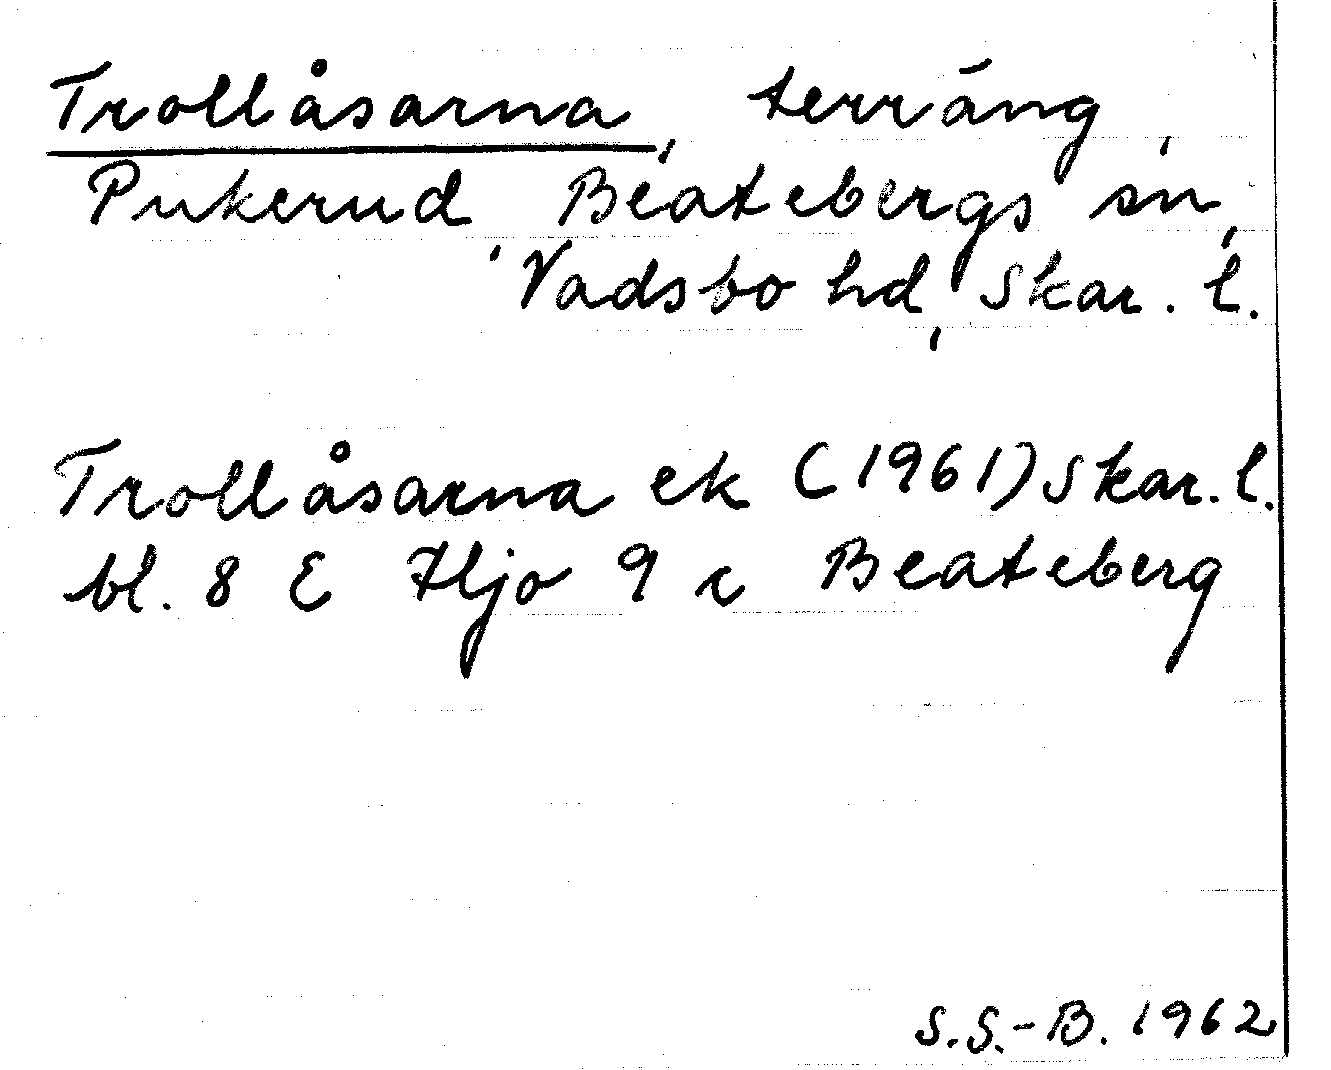 Trollåsarna, terräng,
Pukerud, Beatebergs sn,
Vadsbo hd, Skar. l.
Trollåsarna ek (1961) Skar. l.
bl. 8 E Hjo 9 c Beateberg
S.S.-B. 1962